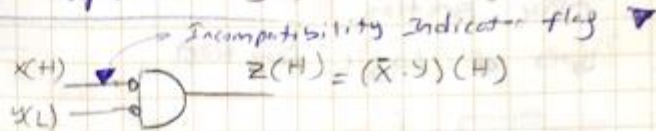 Incompatibility Indicator flag
X(H)
Z(H) = (X̄ · Y)(H)
Y(L)